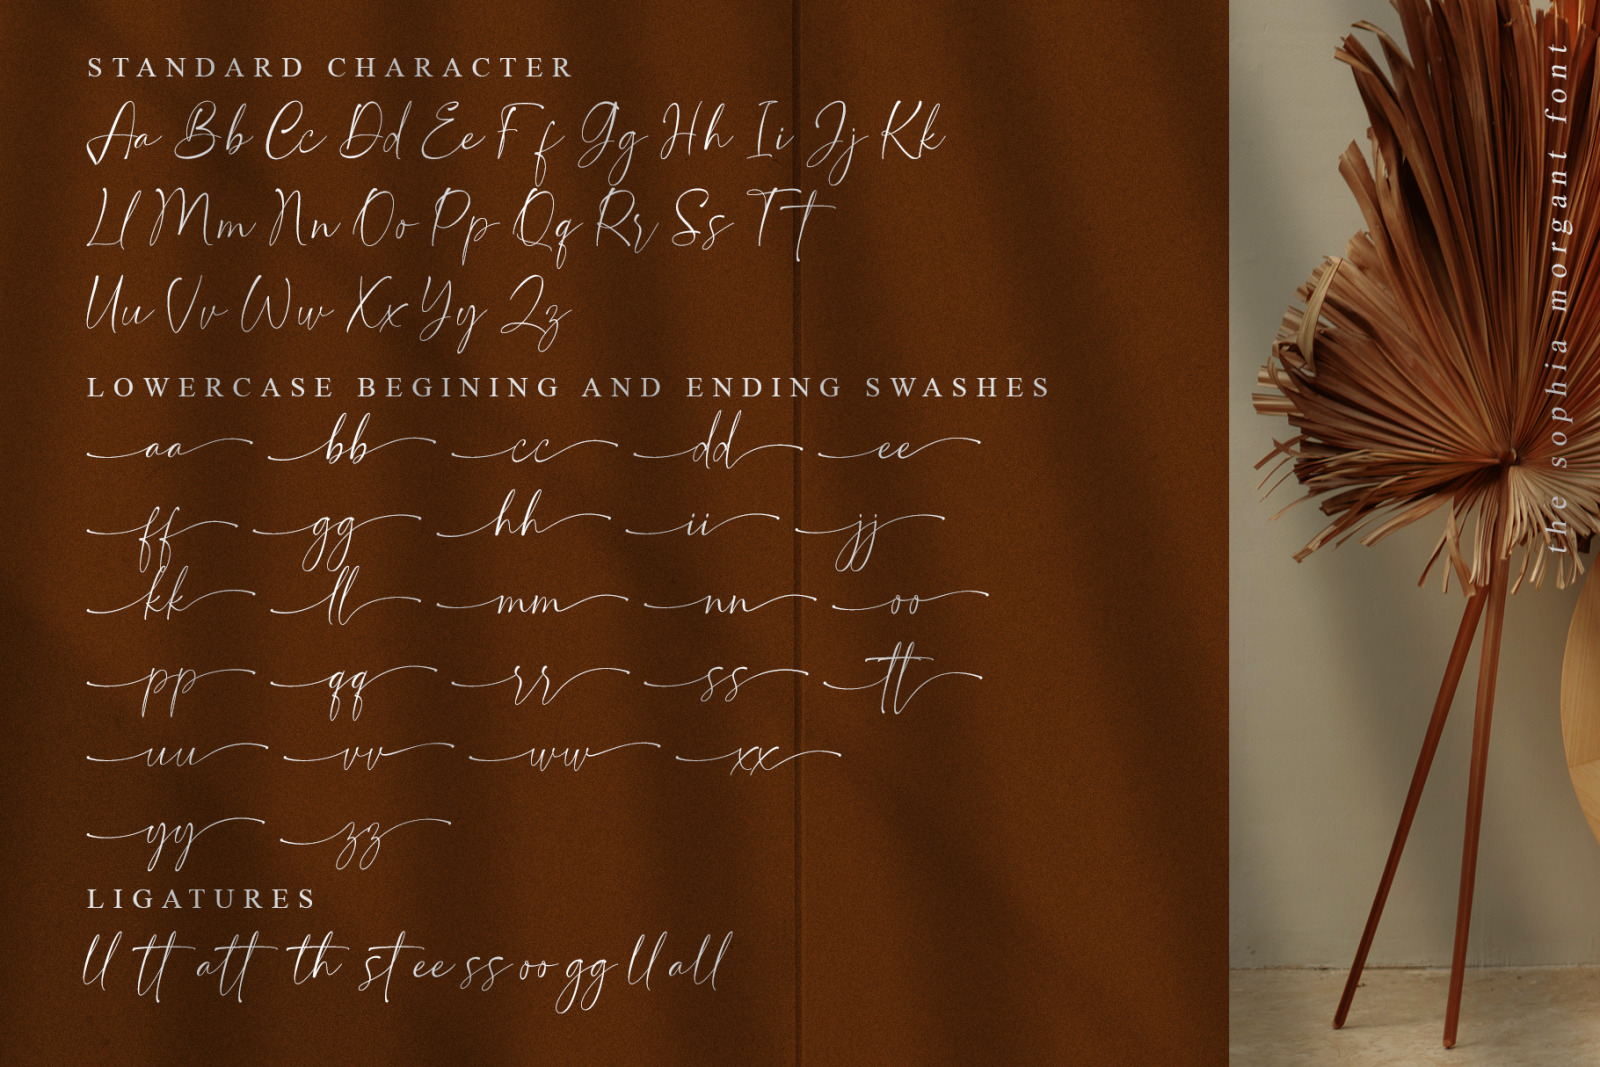 STANDARD CHARACTER
Aa Bb Cc Dd Ee Ff Gg Hh Ii Jj Kk
Ll Mm Nn Oo Pp Qq Rr Ss Tt
Uu Vv Ww Xx Yy Zz
LOWERCASE BEGINING AND ENDING SWASHES
aa bb cc dd ee
ff gg hh ii jj
kk ll mm nn oo
pp qq rr ss tt
uu vv ww xx
yy zz
LIGATURES
ll tt att th st ee ss oo gg ll all
the sophia morgant font